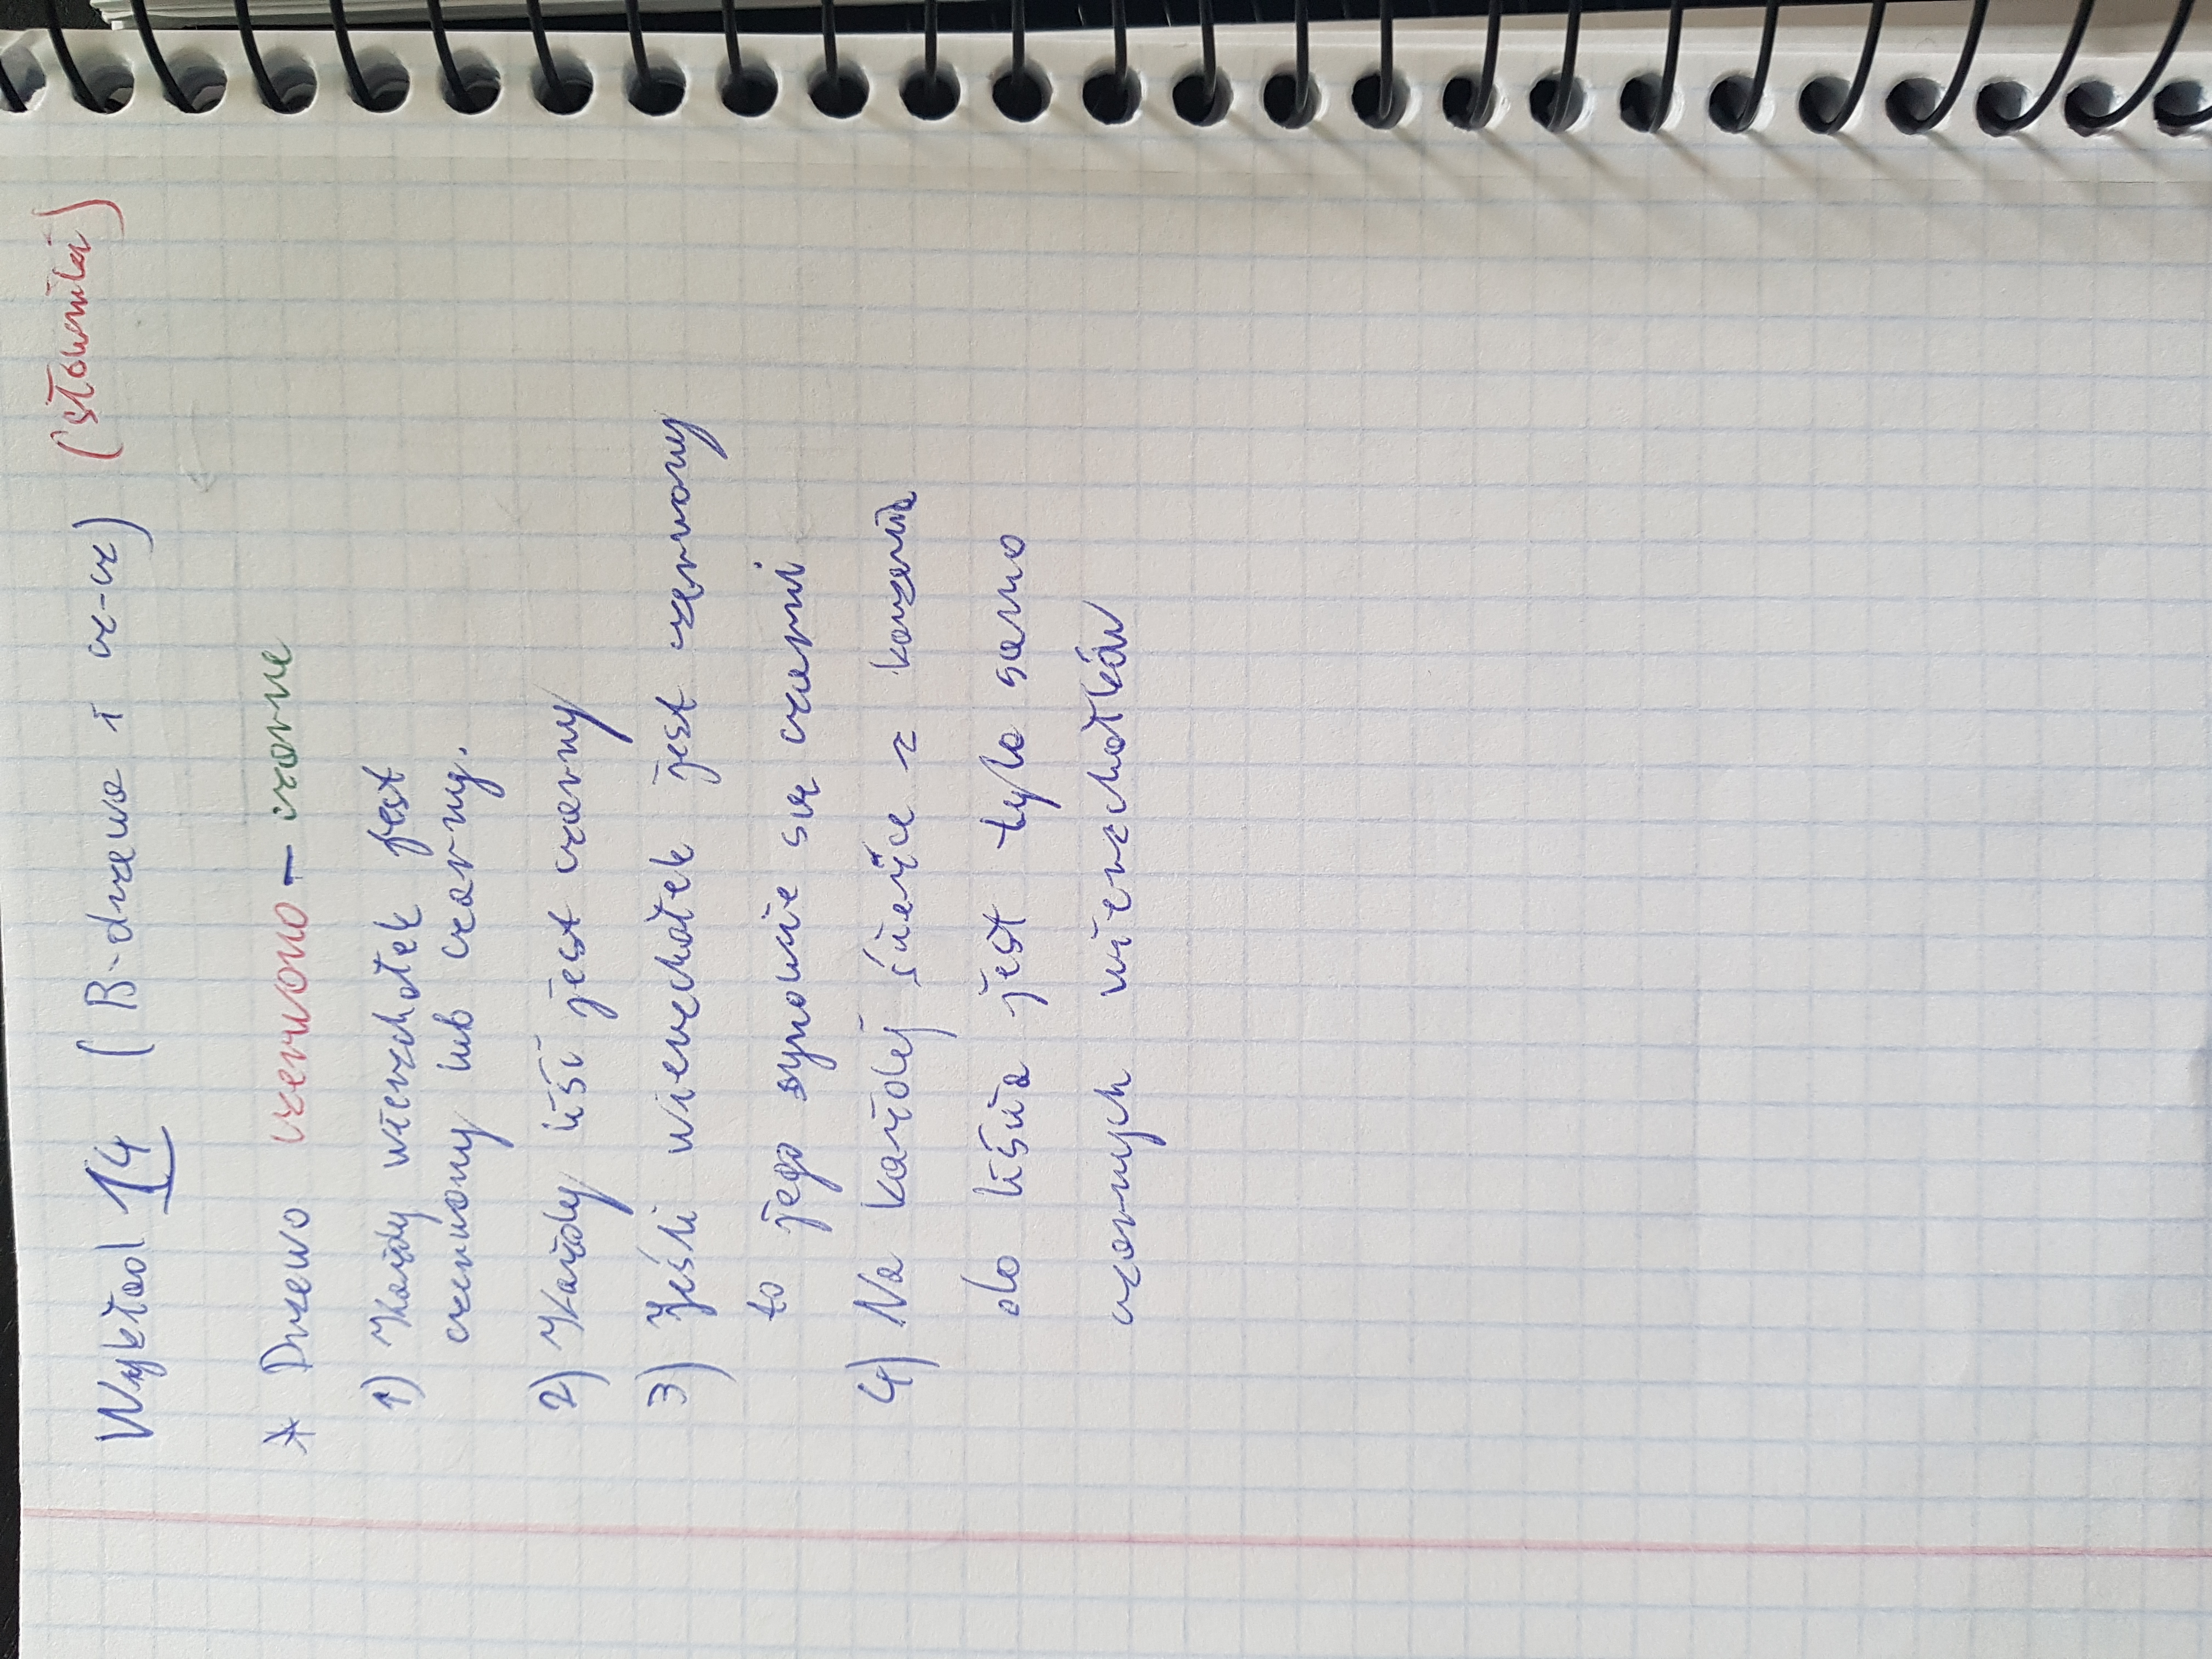 Wykład 14 (B-drzewa i cz-cz) (słownik)
* Drzewo czerwono-czarne
1) Każdy wierzchołek jest
czerwony lub czarny.
2) Każdy liść jest czarny
3) Jeśli wierzchołek jest czerwony
to jego synowie są czarni
4) Na każdej ścieżce z korzenia
do liścia jest tylo samo
czarnych wierzchołków